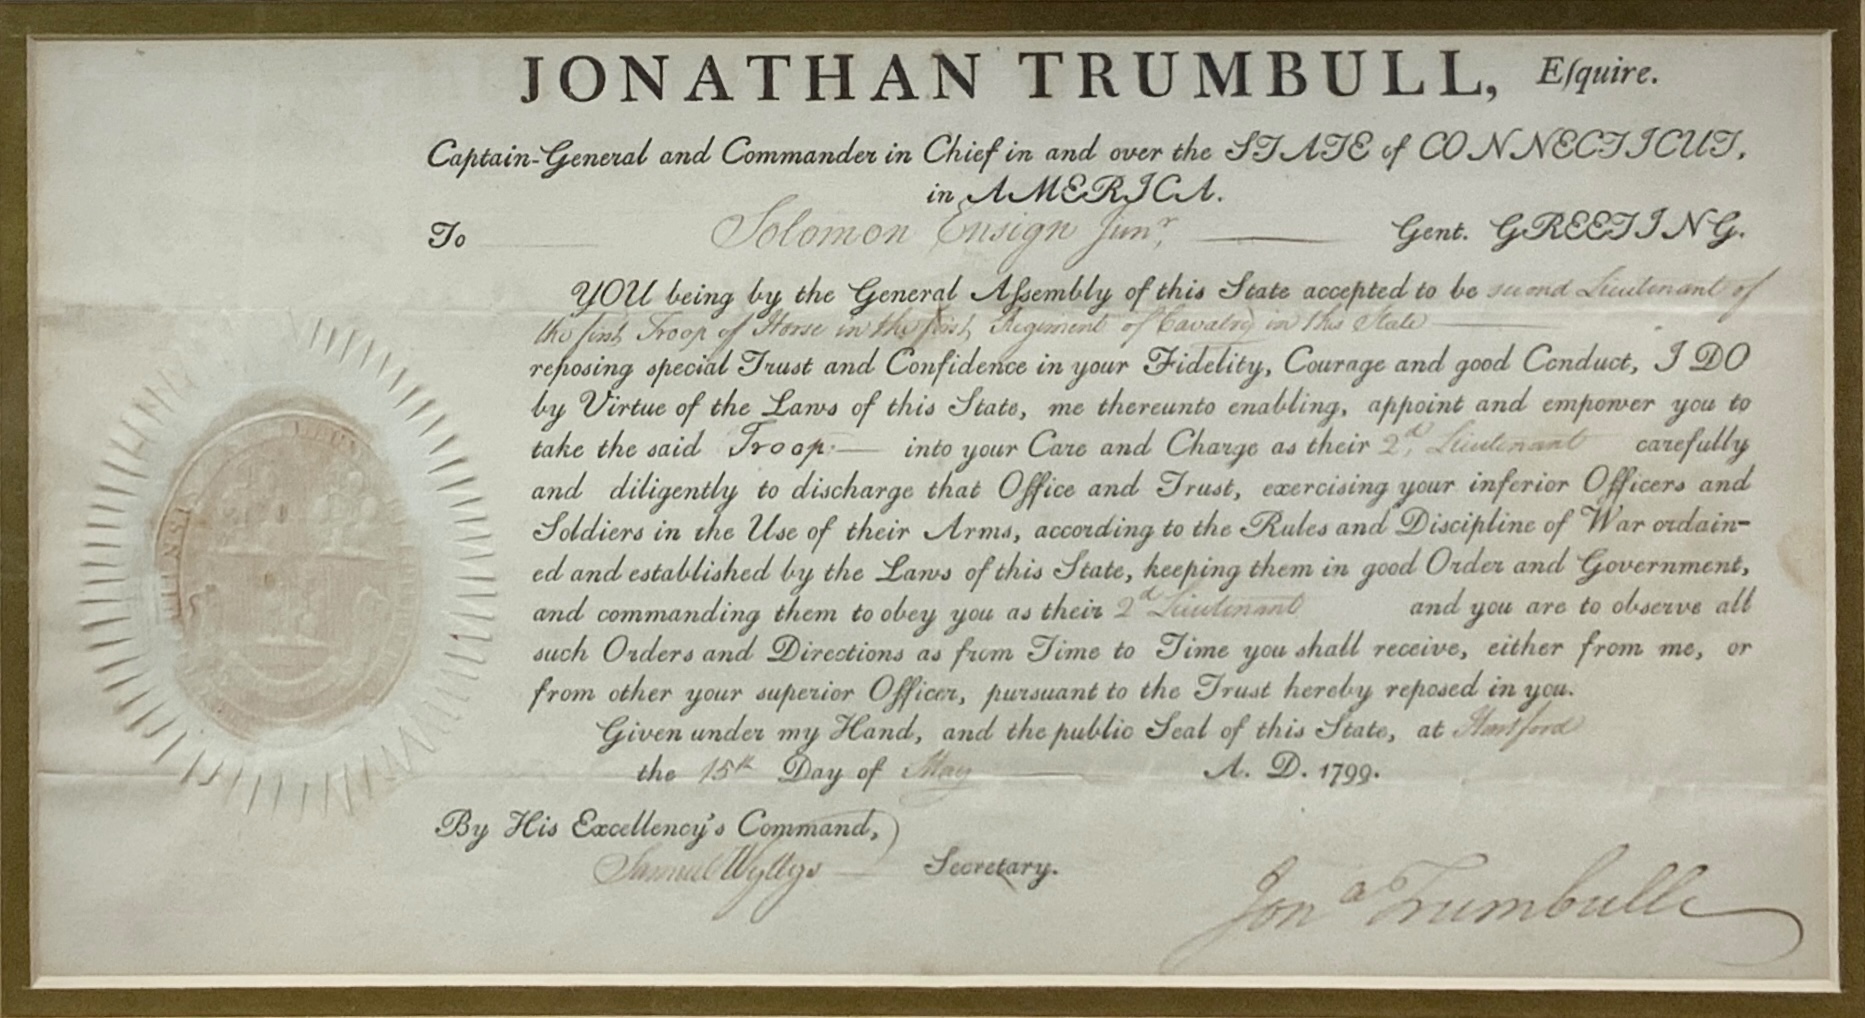 JONATHAN TRUMBULL, Eſquire.
Captain-General and Commander in Chief in and over the STATE of CONNECTICUT,
in AMERICA.
To Solomon Ensign Junr, Gent. GREETING.
YOU being by the General Aſsembly of this State accepted to be second Lieutenant of
the first Troop of Horse in the first Regiment of Cavalry in this State
reposing special Trust and Confidence in your Fidelity, Courage and good Conduct, I DO
by Virtue of the Laws of this State, me thereunto enabling, appoint and empower you to
take the said Troop into your Care and Charge as their 2d, Lieutenant carefully
and diligently to discharge that Office and Trust, exercising your inferior Officers and
Soldiers in the Use of their Arms, according to the Rules and Discipline of War ordain-
ed and established by the Laws of this State, keeping them in good Order and Government,
and commanding them to obey you as their 2d Lieutenant and you are to observe all
such Orders and Directions as from Time to Time you shall receive, either from me, or
from other your superior Officer, pursuant to the Trust hereby reposed in you.
Given under my Hand, and the public Seal of this State, at Hartford
the 15th Day of May A. D. 1799.
By His Excellency's Command,)
Samuel Wyllys Secretary.
Jona Trumbull